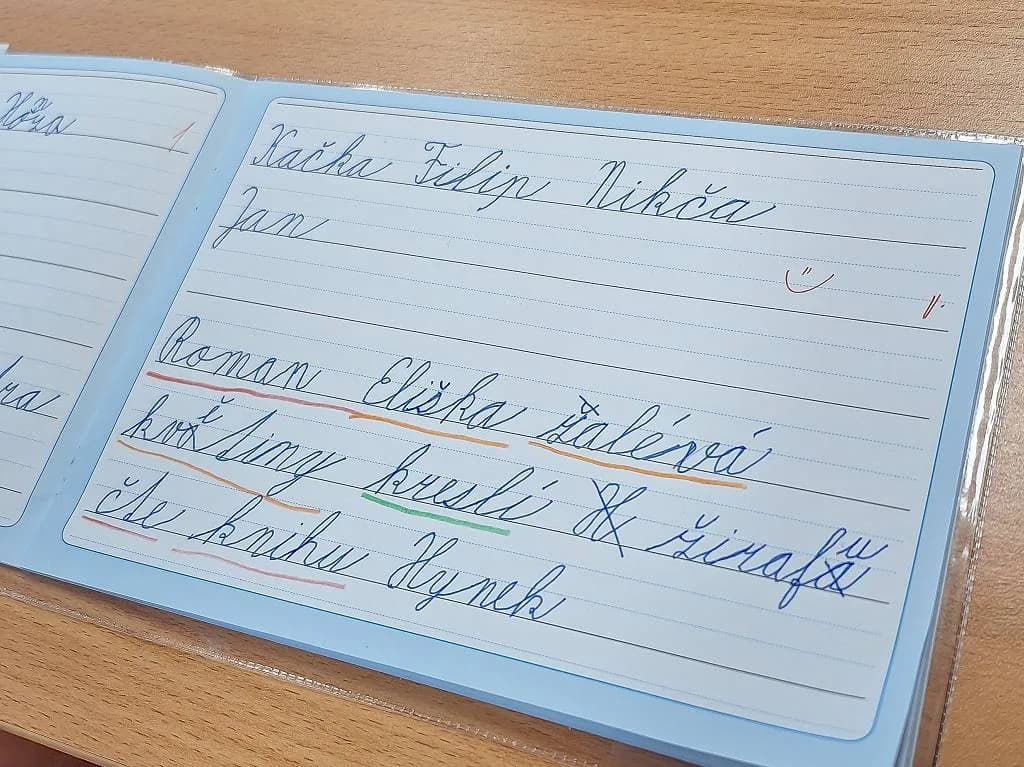 Kačka Filip Nikča
Jan
1.
Roman Eliška zalévá
květiny kreslí žirafu
čte knihu Hynek